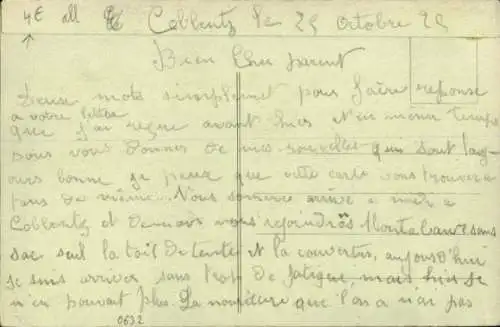 4€ all
Coblentz le 29 octobre 29
Bien Cher parent
Deux mots simplement pour faire reponse
a votre lettre
que j'ai reçue avant hier et en meme temps
pour vous donner de mes nouvelles qui sont touj
ours bonne je pense que cette carte vous trouvera
pans de même. Nous somme arrivé a midi a
Coblentz et demain nous rejoindrös Montabaur sans
sac seul la toil de tente et la couverture, aujourd'hui
je suis arriver sans trop de fatigue, mais hier je
n'en pouvait plus. La nourriture que l'on a n'ai pas
0632